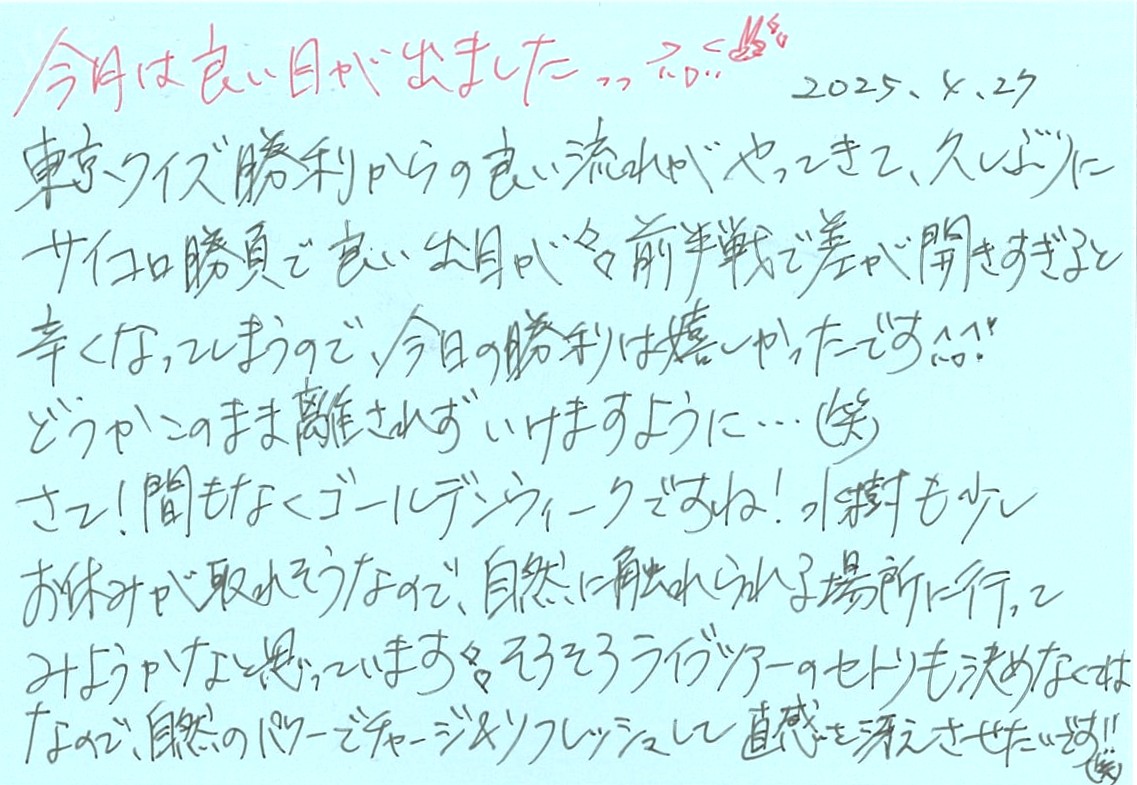 今日は良い目が出ました っっ
2025.4.27
東京クイズ勝利からの良い流れがやってきて、久しぶりに
サイコロ勝負で良い出目が 前半戦で差が開きすぎると
辛くなってしまうので、今日の勝利は嬉しかったです^^
どうかこのまま離されずいけますように…(笑)
さて!間もなくゴールデンウィークですね!水樹も少し
お休みが取れそうなので、自然に触れられる場所に行って
みようかなと思っています そろそろライブツアーのセトリも決めなくては
なので、自然のパワーでチャージ&リフレッシュして直感を冴えさせたいです!!(笑)